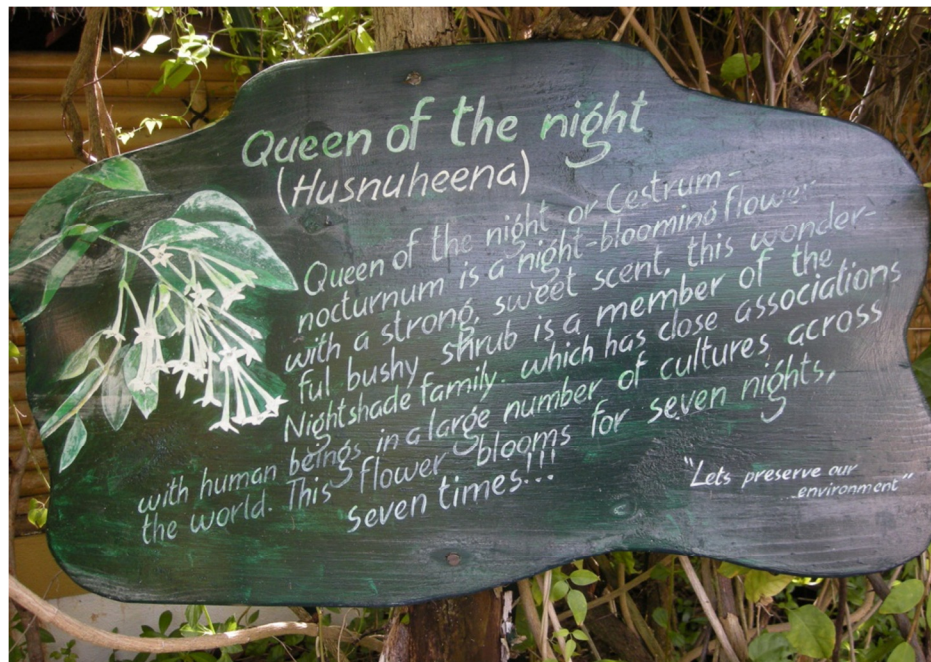 Queen of the night
(Husnuheena)
Queen of the night or Cestrum-
nocturnum is a night-blooming flower
with a strong, sweet scent. this wonder-
ful bushy shrub is a member of the
Nightshade family. which has close associations
with human beings in a large number of cultures across
the world. This flower blooms for seven nights,
seven times!!!
"Lets preserve our
environment"